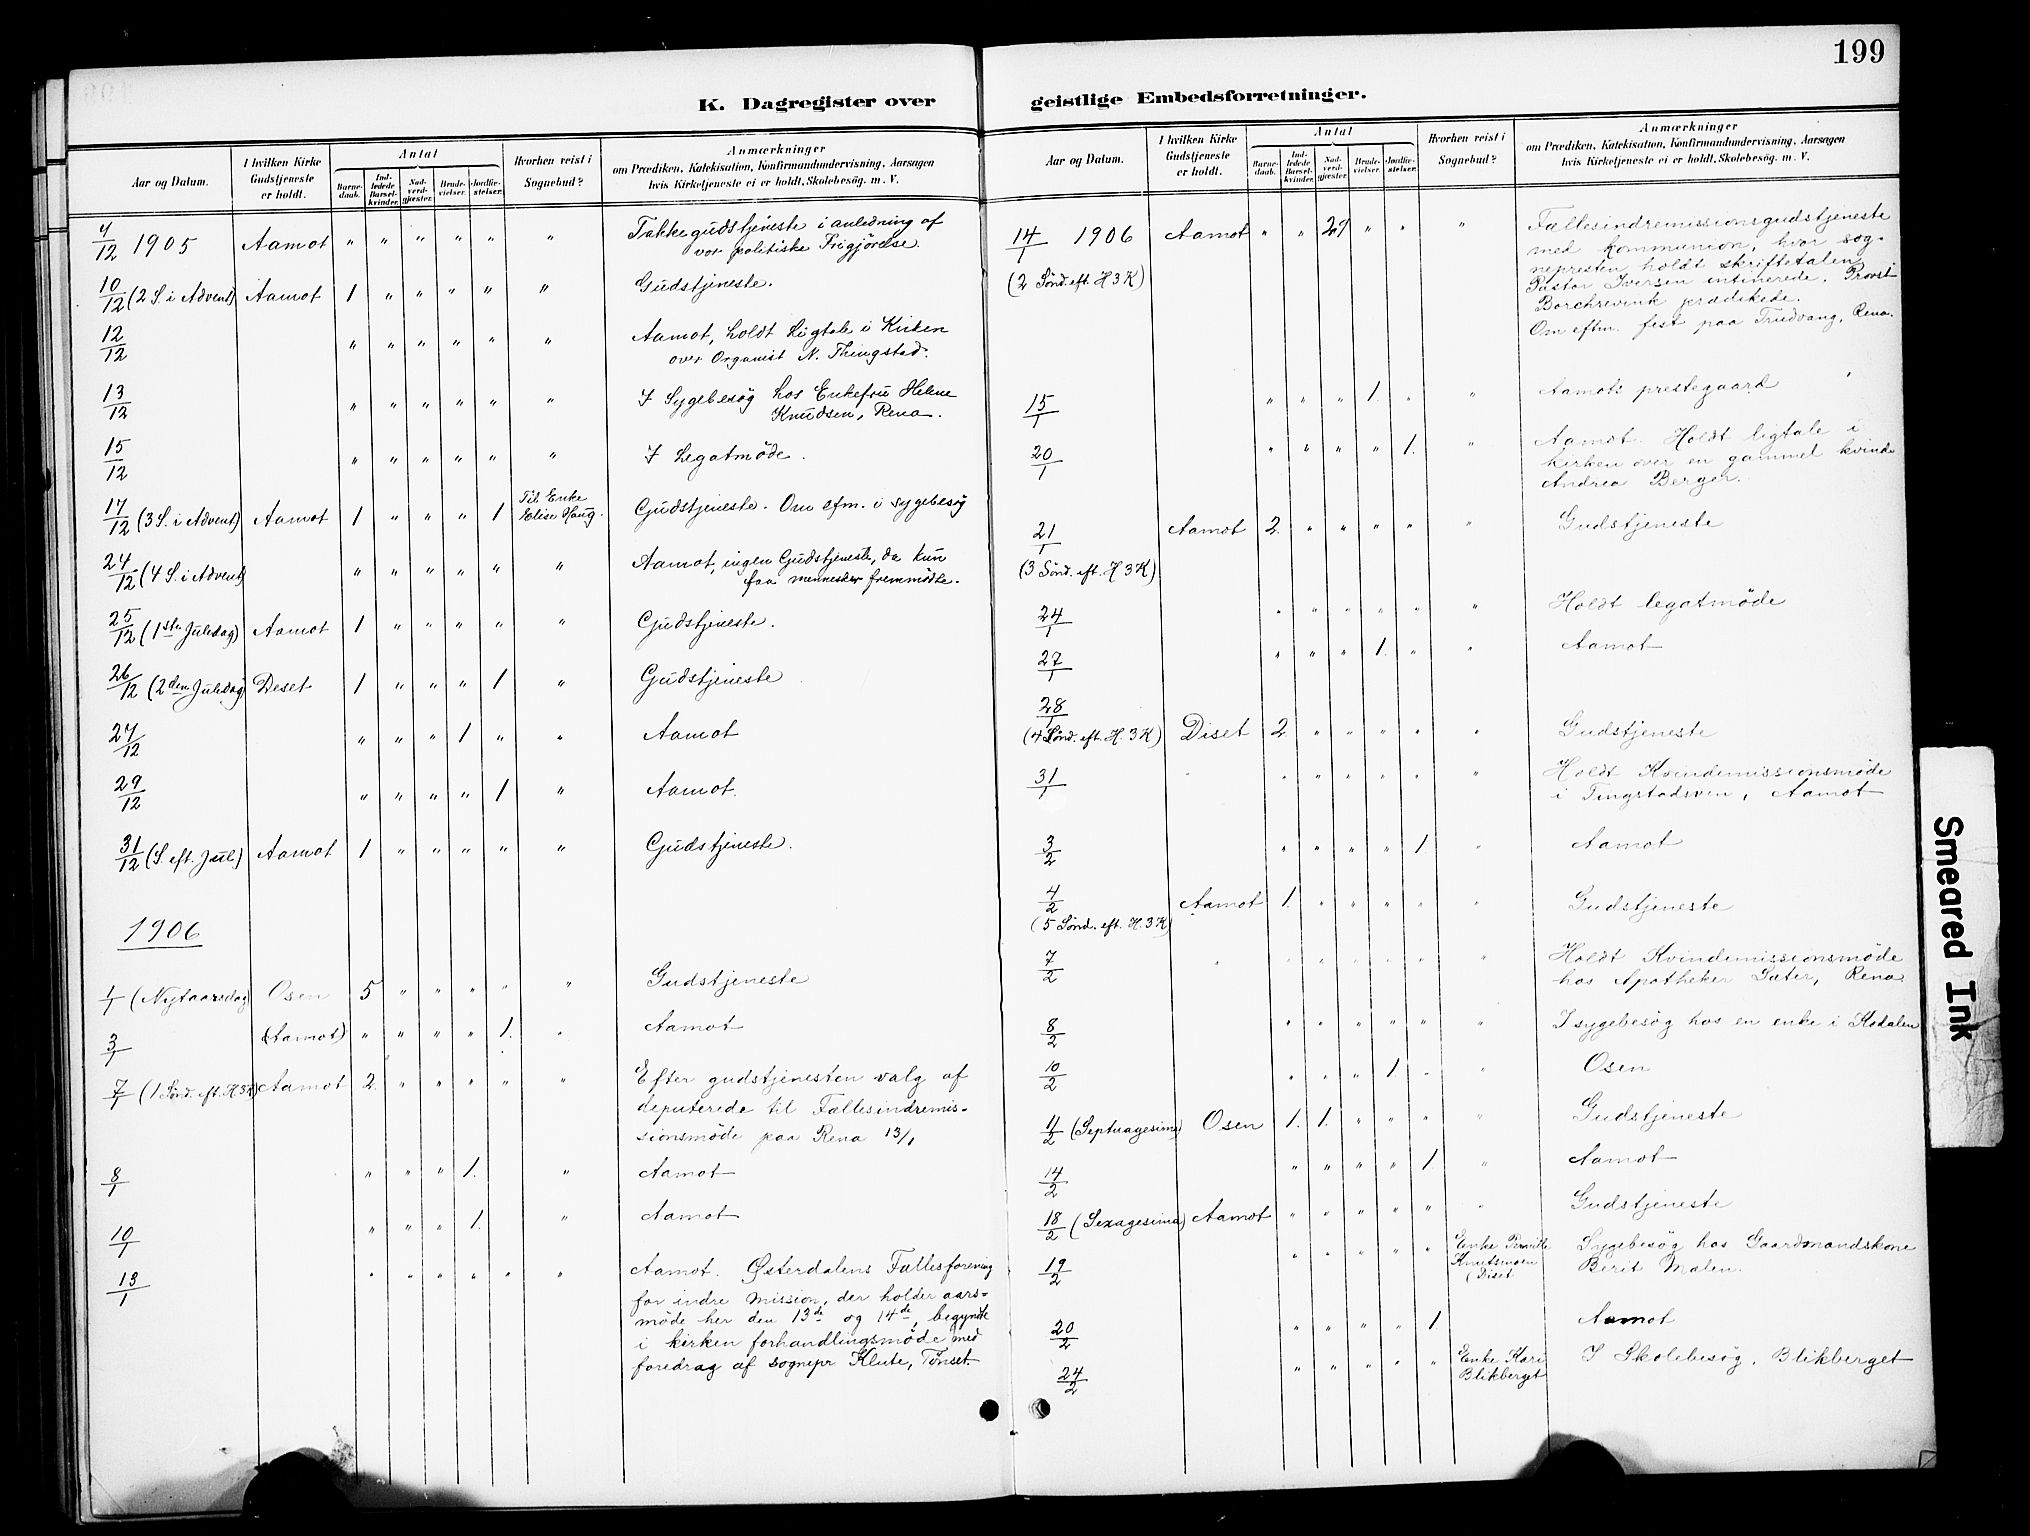 199
K. Dagregister over geistlige Embedsforretninger.
Aar og Datum.
I hvilken Kirke Gudstjeneste er holdt.
Antal
Barnedaab.
Indledede Barselkvinder.
Nadverdgjæster.
Brudevielser.
Jordfæstelser.
Hvorhen reist i Sognebud?
Anmærkninger
om Prædiken, Katekisation, Konfirmandundervisning, Aarsagen
hvis Kirketjeneste ei er holdt, Skolebesøg. m. V.
4/12 1905 Aamot " " " " " " Takkegudstjeneste i anledning af
vor politiske Frigjörelse.
10/12 (2 S. i Advent) Aamot 1 " " " " " Gudstjeneste.
12/12 " " " " " " Aamot, holdt Ligtale i Kirken
over Organist N. Thingstad.
13/12 " " " " " " I Sygebesög hos Enkefru Helene
Knudsen, Rena.
15/12 " " " " " " I Legatmöde.
17/12 (3 S. i Advent) Aamot 1 " " " 1 Til Enke
Elise Haug. Gudstjeneste. Om efm. i sygebesög
24/12 (4 S. i Advent) " " " " " " Aamot, ingen Gudstjeneste, da kun
faa mennesker fremmödte.
25/12 (1ste Juledag) Aamot 1 " " " " " Gudstjeneste.
26/12 (2den Juledag) Deset 1 " " " 1 " Gudstjeneste
27/12 " " " 1 " " Aamot
29/12 " " " " 1 " Aamot.
31/12 (S. eft. Jul) Aamot 1 " " " " " Gudstjeneste.
1906
1/1 (Nytaarsdag) Osen 5 " " " " " Gudstjeneste
3/1 (Aamot) " " " " 1. " Aamot
7/1 (1 Sönd. eft. H3K) Aamot 2 " " " " " Efter gudstjenesten valg af
deputerede til Fællesindremis-
sionsmöde paa Rena 13/1
8/1 " " " 1. " Aamot
10/1 " " " 1. " Aamot
13/1 " " " " " " Aamot. Østerdalens Fællesforening
for indre Mission, der holder aars-
möde her den 13de og 14de, begyndte
i kirken forhandlingsmöde med
foredrag af sognepr Klute, Tønset.
Aar og Datum.
I hvilken Kirke Gudstjeneste er holdt.
Antal
Barnedaab.
Indledede Barselkvinder.
Nadverdgjæster.
Brudevielser.
Jordfæstelser.
Hvorhen reist i Sognebud?
Anmærkninger
om Prædiken, Katekisation, Konfirmandundervisning, Aarsagen
hvis Kirketjeneste ei er holdt, Skolebesøg. m. V.
14/1 1906 Aamot " " 29 " " " Fællesindremissionsgudstjeneste
(2 Sönd. eft. H3K) med kommunion, hvor sog-
nepresten holdt skriftetalen
Pastor Iversen intinerede. Provst
Borchrevink prædikede.
Om eftm. fest paa Trudvang, Rena.
15/1 " " " 1. " " Aamots prestegaard
20/1 " " " " 1. " Aamot. Holdt ligtale i
kirken over en gammel kvinde
Andrea Berger.
21/1 Aamot 2 " " " " " Gudstjeneste
(3 Sönd. eft. H3K)
24/1 " " " " " " Holdt legatmöde
27/1 " " " 1. " " Aamot
28/1
(4 Sönd. eft. H.3K) Diset 2 " " " " " Gudstjeneste
31/1 " " " " " " " Holdt Kvindemissionsmöde
i Tingstadsven, Aamot
3/2 " " " " 1 " Aamot
4/2 Aamot 1. " " " " " Gudstjeneste
(5 Sönd. eft. H.3K)
7/2 " " " " " " " Holdt Kvindemissionsmöde
hos Apotheker Sæter, Rena
8/2 " " " " " " I sygebesög hos en enke i Kodalen
10/2 " " " 1. " " Osen
11/2 (Septuagesima) Osen 1. 1. " " " " Gudstjeneste
14/2 " " " " 1 " Aamot
18/2 (Sexagesima) Aamot " " " " " " Gudstjeneste
19/2 " " " " " Enke Pernille
Knutsmoen
(Diset Sygebesög hos Gaardmandskone
Berit Malen.
20/2 " " " " 1 Aamot
24/2 " " " " " Enke Kari
Blikberget I Skolebesög, Blikberget
Smeared Ink